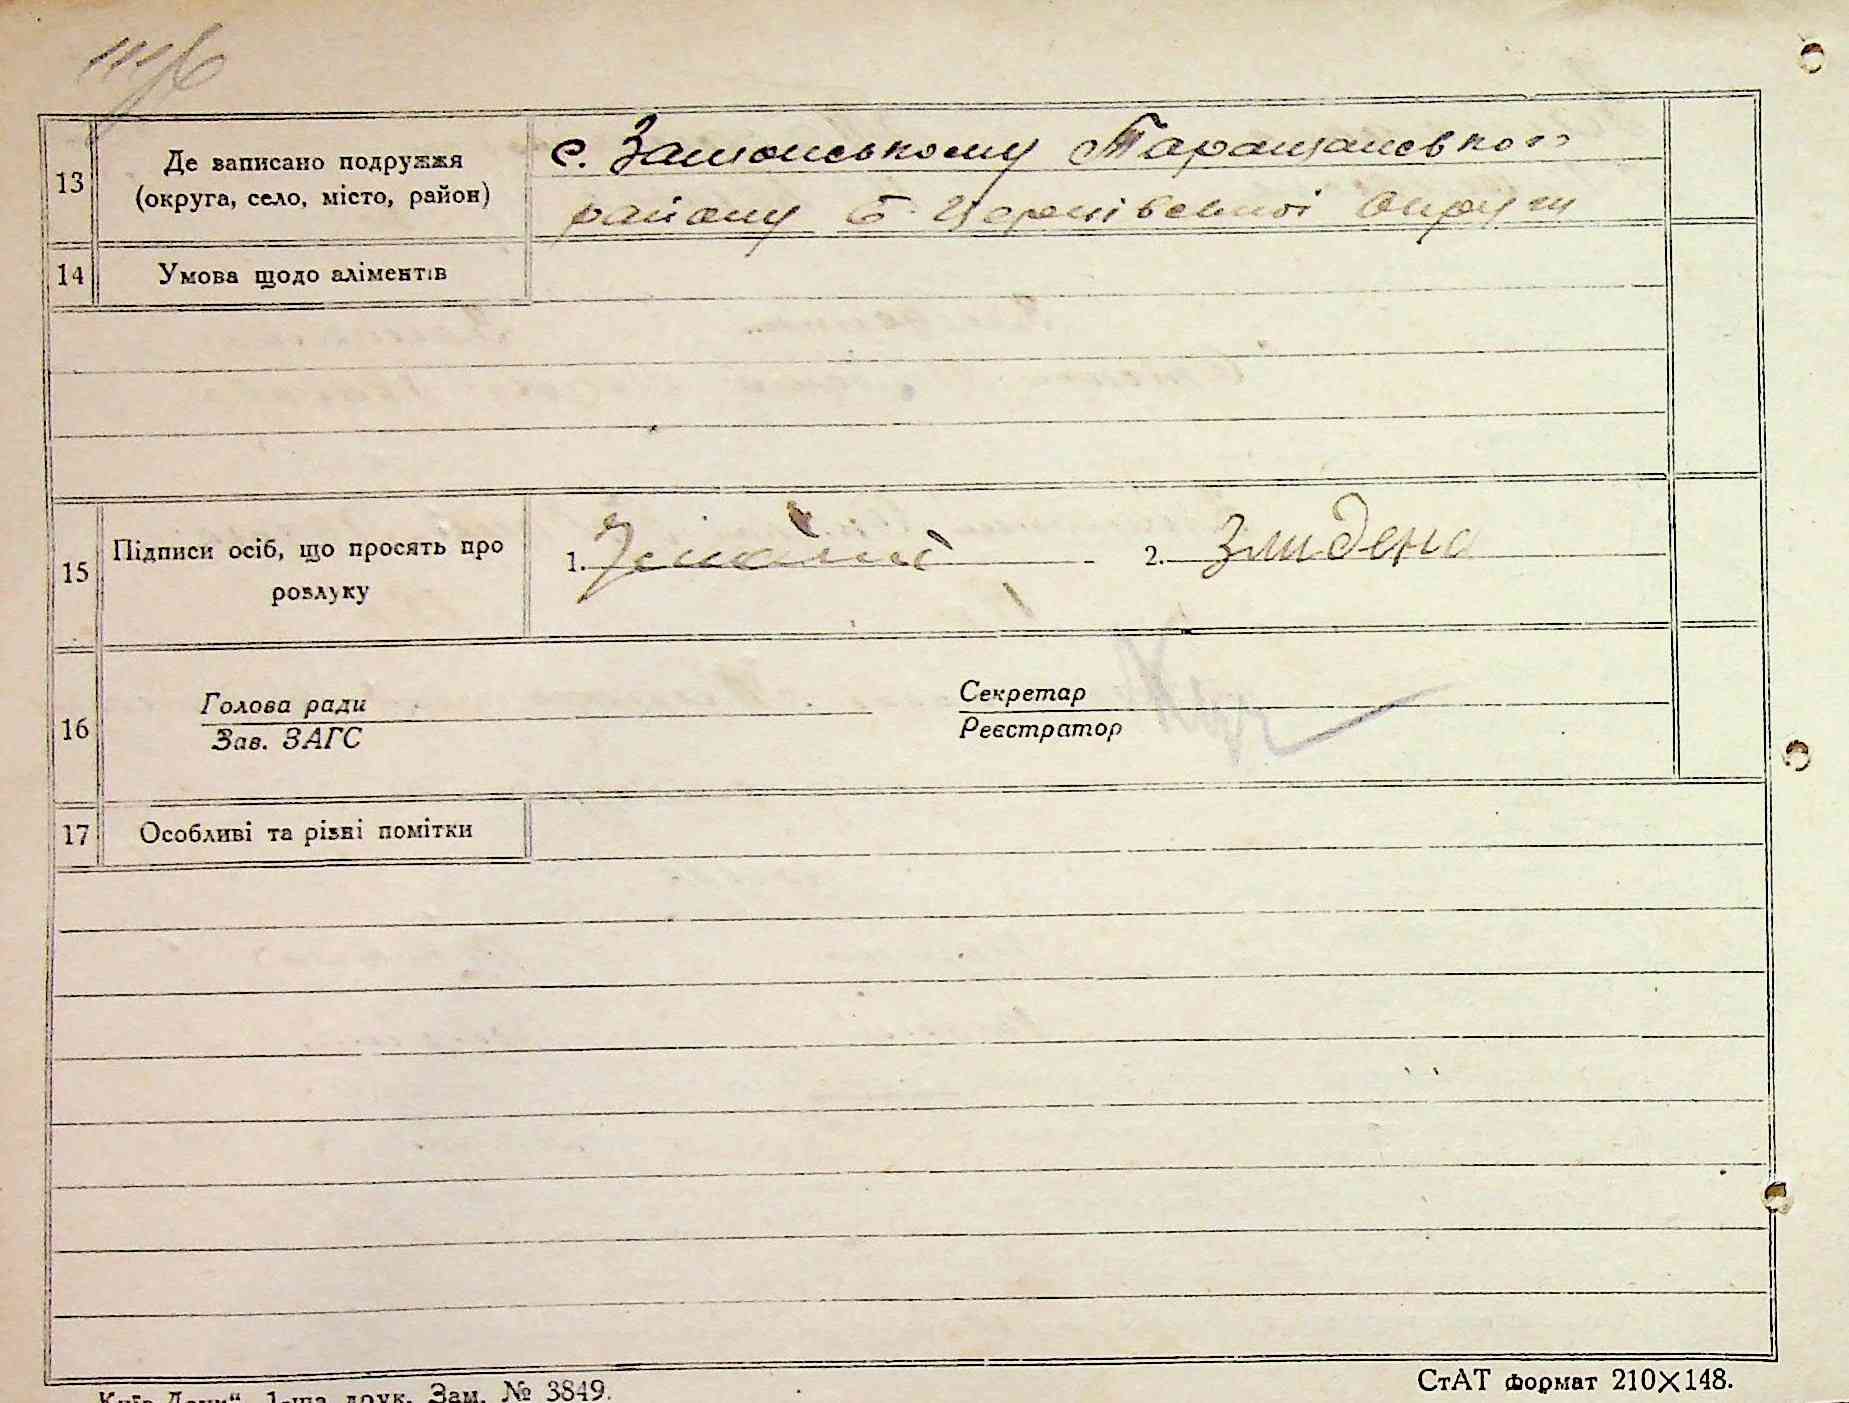 13
Де записано подружжя
(округа, село, місто, район)
с. Таращанського
району Б. Церківської округи
14
Умова щодо аліментів
15
Підписи осіб, що просять про
розлуку
1.
2. Злидена
16
Голова ради
Зав. ЗАГС
Секретар
Реєстратор
17
Особливі та різні помітки
1-ша друк. Зам. № 3849.
СтАТ формат 210×148.